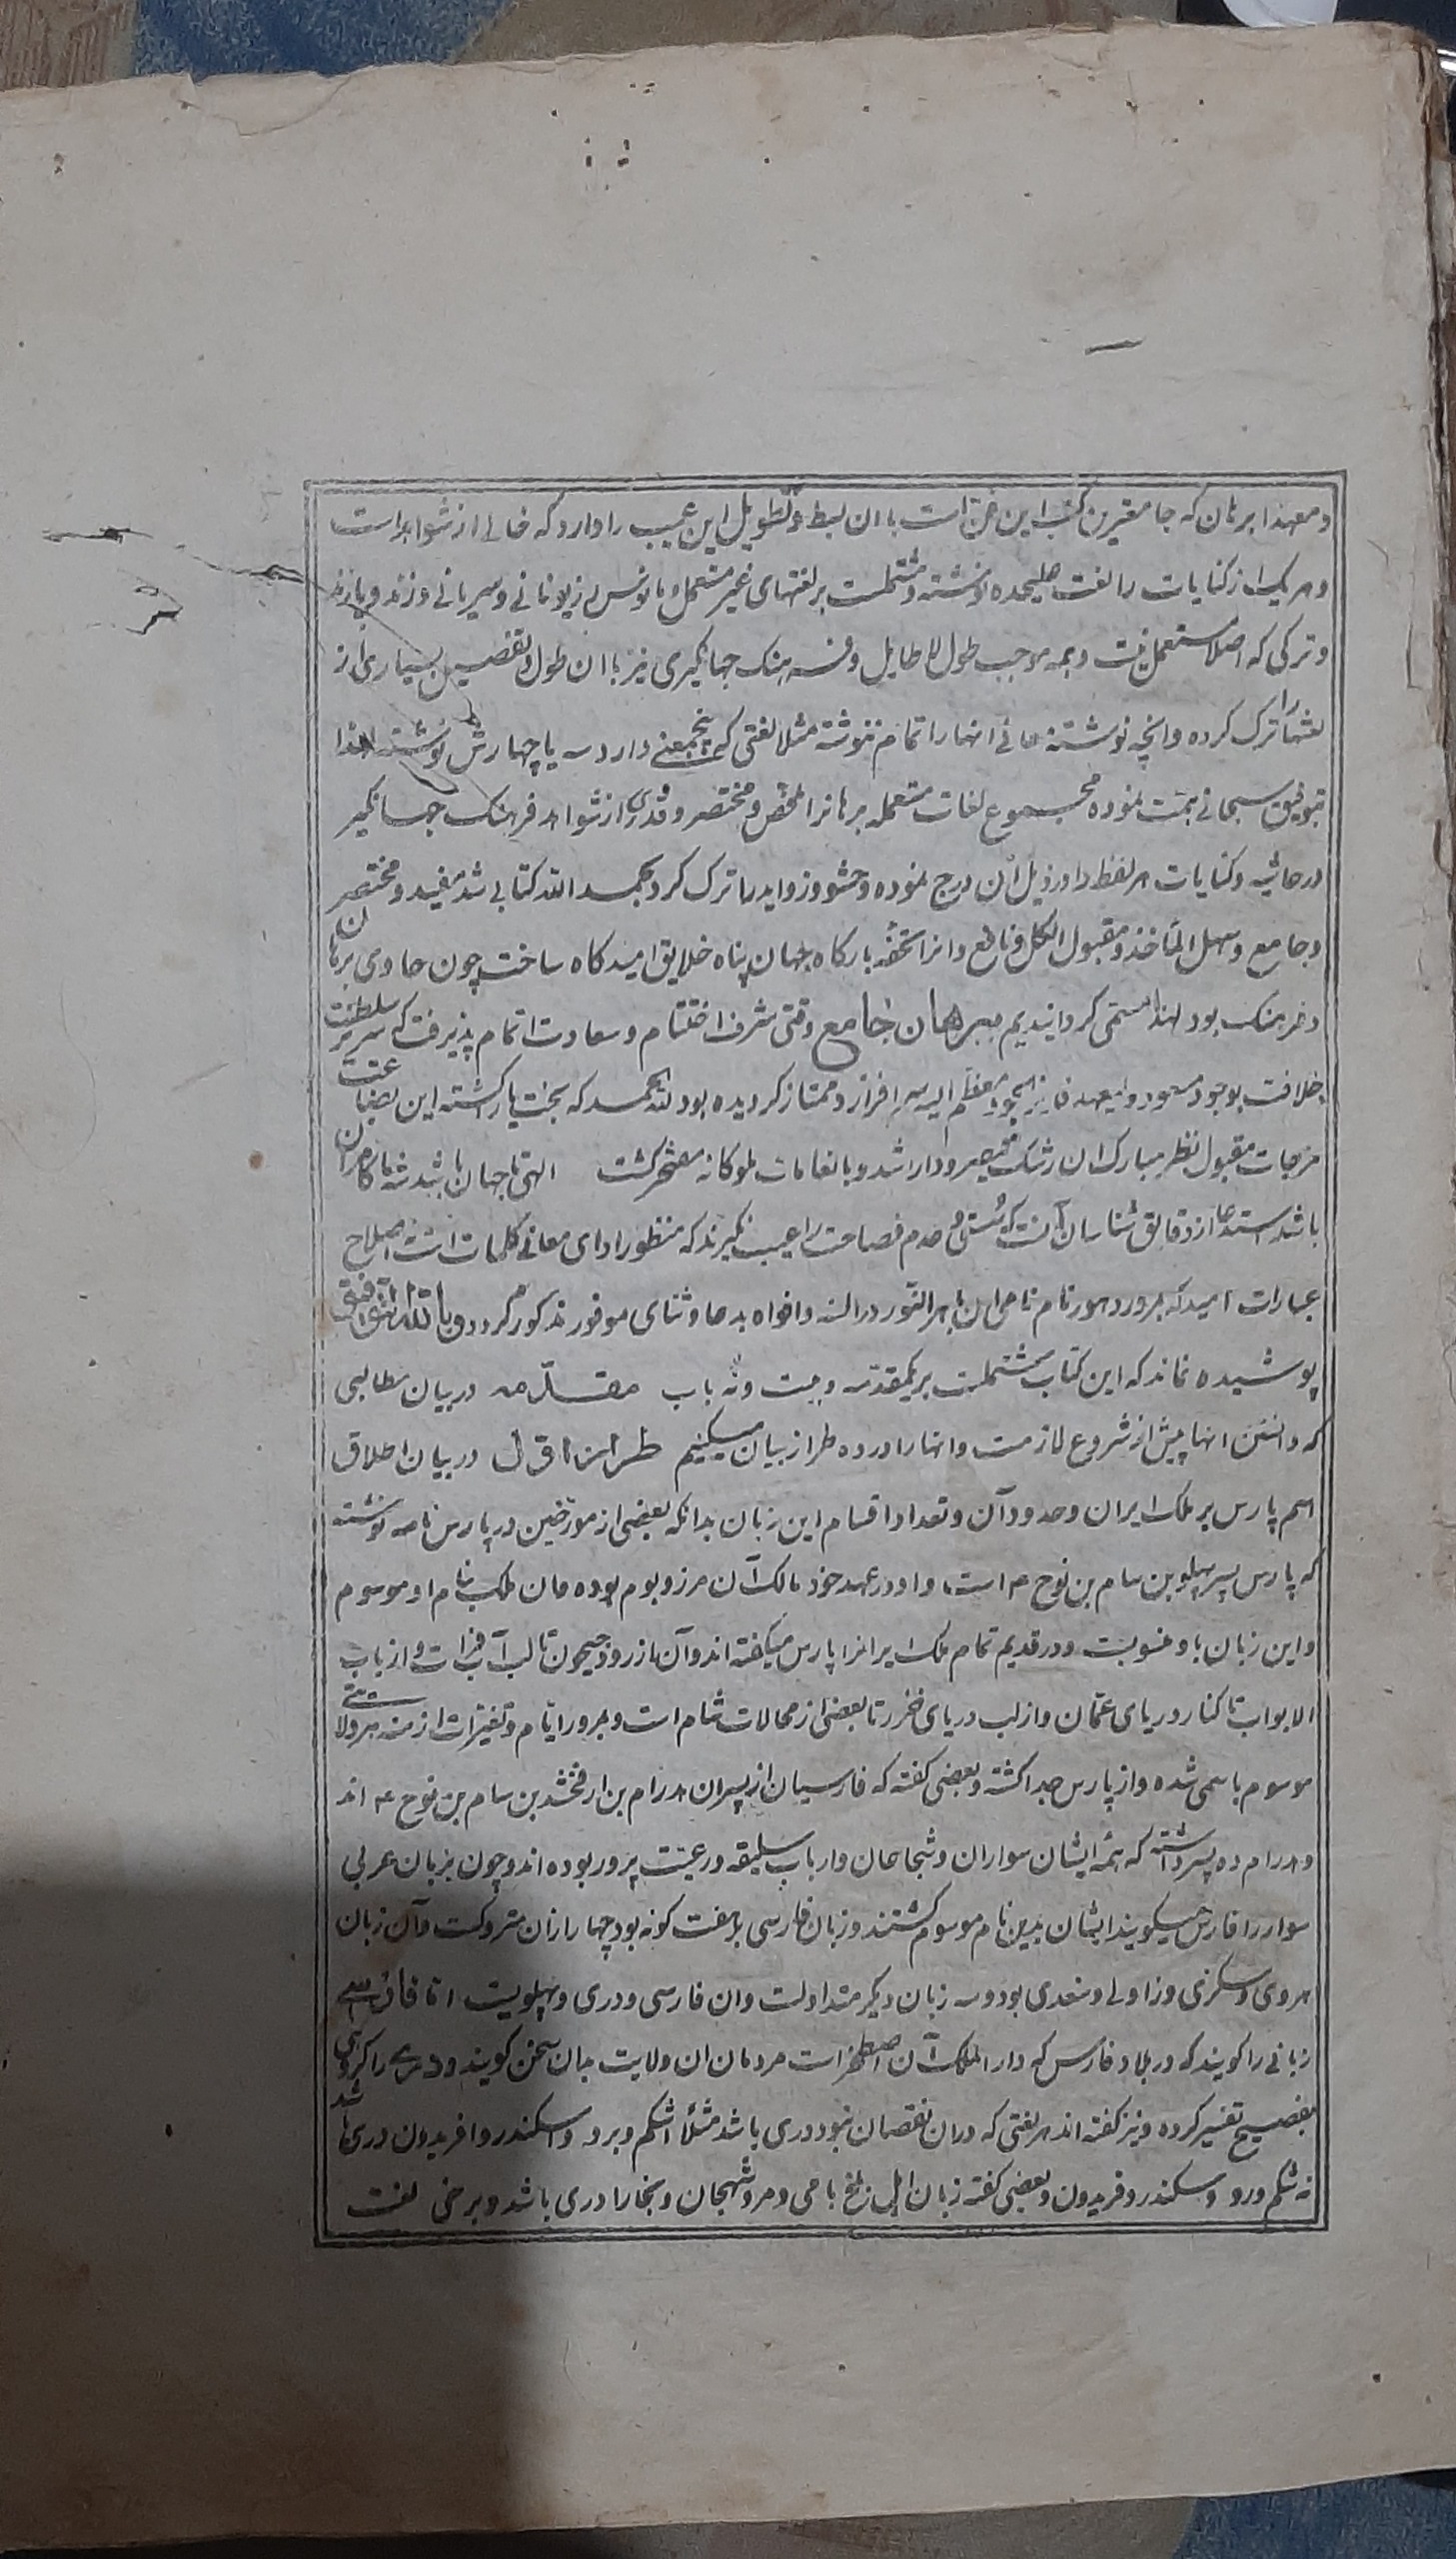 و معهذا برهان که جامعترین کتب این فن است با ان بسط و تطویل این عیب را دارد که خالی از شواهد است
و هر یک از کنایات را لغت علیحده نوشته و مشتملست بر لغتهای غیر مستعمل و نامانوس از یونانی و سریانی و زند و پازند
و ترکی که اصلا مستعمل نیست و همه موجب طول لاطایل و فرهنک جهانکیری نیز با ان طول و تفصیل بسیاری از
لغتها را ترک کرده و انچه نوشته معانی انها را تمام ننوشته مثلا لغتی که پنجمعنی دارد سه یا چهارش نوشته لهذا
بتوفیق سبحانی همت نموده مجموع لغات مستعمله برهانرا ملخص و مختصر و قدری از شواهد فرهنک جهانکیر
در حاشیه و کنایات هر لفظ را در ذیل آن درج نموده و حشو و زواید را ترک کرد بحمد الله کتابی شد مفید و مختصر
و جامع و سهل المأخذ و مقبول الکل و نافع و انرا تحفه بارکاه جهان پناه خلایق امیدکاه ساخت چون حاوی برهان
و فرهنک بود لهذا مسمی کردانیدیم ببرهان جامع وقتی شرف اختتام و سعادت اتمام پذیرفت که سریر سلطنت
و خلافت بوجود مسعود ولیعهد معظم الیه سرافراز و ممتاز کردیده بود لله الحمد که بخت یار کشته این بضاعت
مزجات مقبول نظر مبارک ان رشک قیصر و دارا شد و بانعامات ملوکانه مفتخر کشت الهی تا جهان باشد شه ما کامران
باشد استدعا از دقایق شناسان آنست که سستی و عدم فصاحت را عیب نکیرند که منظور ادای معانی کلمات است نه اصلاح
عبارات امید که بمرور دهور نام نامی این باهر النور در السنه و افواه بدعا و ثنای موفور مذکور کردد و بالله التوفیق
پوشیده نماند که این کتاب مشتملست بر یکمقدمه و بیست و نه باب مقدّمه در بیان مطالبی
که دانستن انها پیش از شروع لازمست و انها را در ده طراز بیان میکنیم طراز اوّل در بیان اطلاق
اسم پارس بر ملک ایران و حدود آن و تعداد اقسام این زبان بدانکه بعضی از مورّخین در پارس نامه نوشته
که پارس پسر پهلو بن سام بن نوح ع است و او در عهد خود مالک آن مرز و بوم بوده و ان ملک بنام او موسوم
و این زبان باو منسوبست و در قدیم تمام ملک ایرانرا پارس میکفته اند و آن از رود جیحون تا لب آب فرات و از باب
الابواب تا کنار دریای عمّان و از لب دریای خزر تا بعضی از محالات شام است و بمرور ایّام و تغییرات ازمنه هر ولایتی
موسوم باسمی شده و از پارس جدا کشته و بعضی کفته که فارسیان از پسران هدرام بن ارفخشد بن سام بن نوح ع اند
و هدرام ده پسر داشته که همه ایشان سواران و شجاعان و ارباب سلیقه و رعیت پرور بوده اند و چون بزبان عربی
سوار را فارس میکویند ایشان بدین نام موسوم کشتند و زبان فارسی بر هفت کونه بود چهار ازان متروکست و آن زبان
هروی و سکزی و زاولی و سغدی بود و سه زبان دیکر متداولست و ان فارسی و دری و پهلویست اما فارسی
زبانی را کویند که در بلاد فارس که دار الملک آن اصطخر است مردمان ان ولایت بدان سخن کویند و دری را کروهی
بفصیح تفسیر کرده و نیز کفته اند هر لغتی که دران نقصان نبود دری باشد مثلاً اشکم و برو و اسکندر و افریدون دری باشد
نه شکم و رو و سکندر و فریدون و بعضی کفته زبان اهل بلخ بامی و مرو شهجان و بخارا دری باشد و برخی لغت